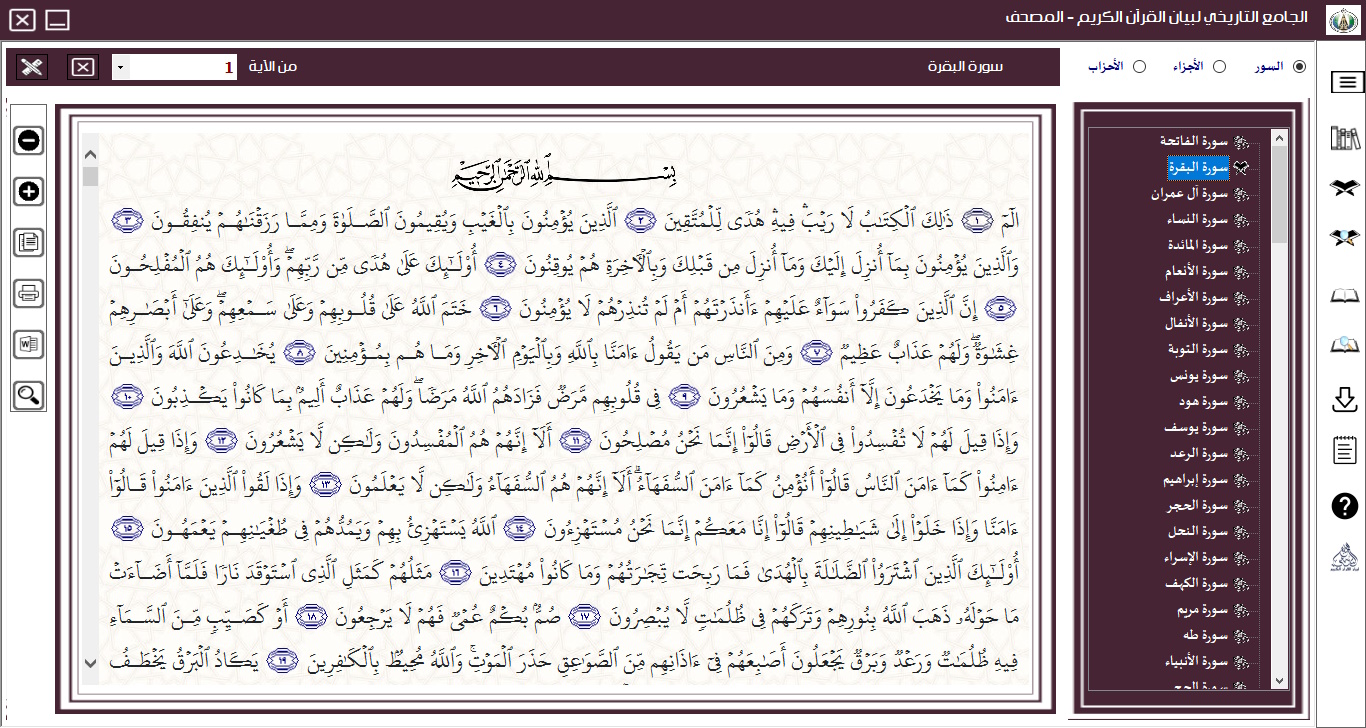 الجامع التاريخي لبيان القرآن الكريم - المصحف
السور
الأجزاء
الأحزاب
سورة البقرة
من الآية
1
سورة الفاتحة
سورة البقرة
سورة آل عمران
سورة النساء
سورة المائدة
سورة الأنعام
سورة الأعراف
سورة الأنفال
سورة التوبة
سورة يونس
سورة هود
سورة يوسف
سورة الرعد
سورة إبراهيم
سورة الحجر
سورة النحل
سورة الإسراء
سورة الكهف
سورة مريم
سورة طه
سورة الأنبياء
سورة الحج
بِسْمِ ٱللَّهِ ٱلرَّحْمَٰنِ ٱلرَّحِيمِ
الٓمٓ ١ ذَٰلِكَ ٱلْكِتَٰبُ لَا رَيْبَۛ فِيهِۛ هُدًى لِّلْمُتَّقِينَ ٢ ٱلَّذِينَ يُؤْمِنُونَ بِٱلْغَيْبِ وَيُقِيمُونَ ٱلصَّلَوٰةَ وَمِمَّا رَزَقْنَٰهُمْ يُنفِقُونَ ٣
وَٱلَّذِينَ يُؤْمِنُونَ بِمَآ أُنزِلَ إِلَيْكَ وَمَآ أُنزِلَ مِن قَبْلِكَ وَبِٱلْأٓخِرَةِ هُمْ يُوقِنُونَ ٤ أُوْلَٰٓئِكَ عَلَىٰ هُدًى مِّن رَّبِّهِمْۖ وَأُوْلَٰٓئِكَ هُمُ ٱلْمُفْلِحُونَ
٥ إِنَّ ٱلَّذِينَ كَفَرُواْ سَوَآءٌ عَلَيْهِمْ ءَأَنذَرْتَهُمْ أَمْ لَمْ تُنذِرْهُمْ لَا يُؤْمِنُونَ ٦ خَتَمَ ٱللَّهُ عَلَىٰ قُلُوبِهِمْ وَعَلَىٰ سَمْعِهِمْۖ وَعَلَىٰٓ أَبْصَٰرِهِمْ
غِشَٰوَةٌۖ وَلَهُمْ عَذَابٌ عَظِيمٌ ٧ وَمِنَ ٱلنَّاسِ مَن يَقُولُ ءَامَنَّا بِٱللَّهِ وَبِٱلْيَوْمِ ٱلْأٓخِرِ وَمَا هُم بِمُؤْمِنِينَ ٨ يُخَٰدِعُونَ ٱللَّهَ وَٱلَّذِينَ
ءَامَنُواْ وَمَا يَخْدَعُونَ إِلَّآ أَنفُسَهُمْ وَمَا يَشْعُرُونَ ٩ فِي قُلُوبِهِم مَّرَضٌ فَزَادَهُمُ ٱللَّهُ مَرَضًاۖ وَلَهُمْ عَذَابٌ أَلِيمُۢ بِمَا كَانُواْ يَكْذِبُونَ ١٠
وَإِذَا قِيلَ لَهُمْ لَا تُفْسِدُواْ فِي ٱلْأَرْضِ قَالُوٓاْ إِنَّمَا نَحْنُ مُصْلِحُونَ ١١ أَلَآ إِنَّهُمْ هُمُ ٱلْمُفْسِدُونَ وَلَٰكِن لَّا يَشْعُرُونَ ١٢ وَإِذَا قِيلَ لَهُمْ
ءَامِنُواْ كَمَآ ءَامَنَ ٱلنَّاسُ قَالُوٓاْ أَنُؤْمِنُ كَمَآ ءَامَنَ ٱلسُّفَهَآءُۗ أَلَآ إِنَّهُمْ هُمُ ٱلسُّفَهَآءُ وَلَٰكِن لَّا يَعْلَمُونَ ١٣ وَإِذَا لَقُواْ ٱلَّذِينَ ءَامَنُواْ قَالُوٓاْ
ءَامَنَّا وَإِذَا خَلَوْاْ إِلَىٰ شَيَٰطِينِهِمْ قَالُوٓاْ إِنَّا مَعَكُمْ إِنَّمَا نَحْنُ مُسْتَهْزِءُونَ ١٤ ٱللَّهُ يَسْتَهْزِئُ بِهِمْ وَيَمُدُّهُمْ فِي طُغْيَٰنِهِمْ يَعْمَهُونَ ١٥
أُوْلَٰٓئِكَ ٱلَّذِينَ ٱشْتَرَوُاْ ٱلضَّلَٰلَةَ بِٱلْهُدَىٰ فَمَا رَبِحَت تِّجَٰرَتُهُمْ وَمَا كَانُواْ مُهْتَدِينَ ١٦ مَثَلُهُمْ كَمَثَلِ ٱلَّذِي ٱسْتَوْقَدَ نَارًا فَلَمَّآ أَضَآءَتْ
مَا حَوْلَهُۥ ذَهَبَ ٱللَّهُ بِنُورِهِمْ وَتَرَكَهُمْ فِي ظُلُمَٰتٍ لَّا يُبْصِرُونَ ١٧ صُمُّۢ بُكْمٌ عُمْيٌ فَهُمْ لَا يَرْجِعُونَ ١٨ أَوْ كَصَيِّبٍ مِّنَ ٱلسَّمَآءِ
فِيهِ ظُلُمَٰتٌ وَرَعْدٌ وَبَرْقٌ يَجْعَلُونَ أَصَٰبِعَهُمْ فِيٓ ءَاذَانِهِم مِّنَ ٱلصَّوَٰعِقِ حَذَرَ ٱلْمَوْتِۚ وَٱللَّهُ مُحِيطُۢ بِٱلْكَٰفِرِينَ ١٩ يَكَادُ ٱلْبَرْقُ يَخْطَفُ